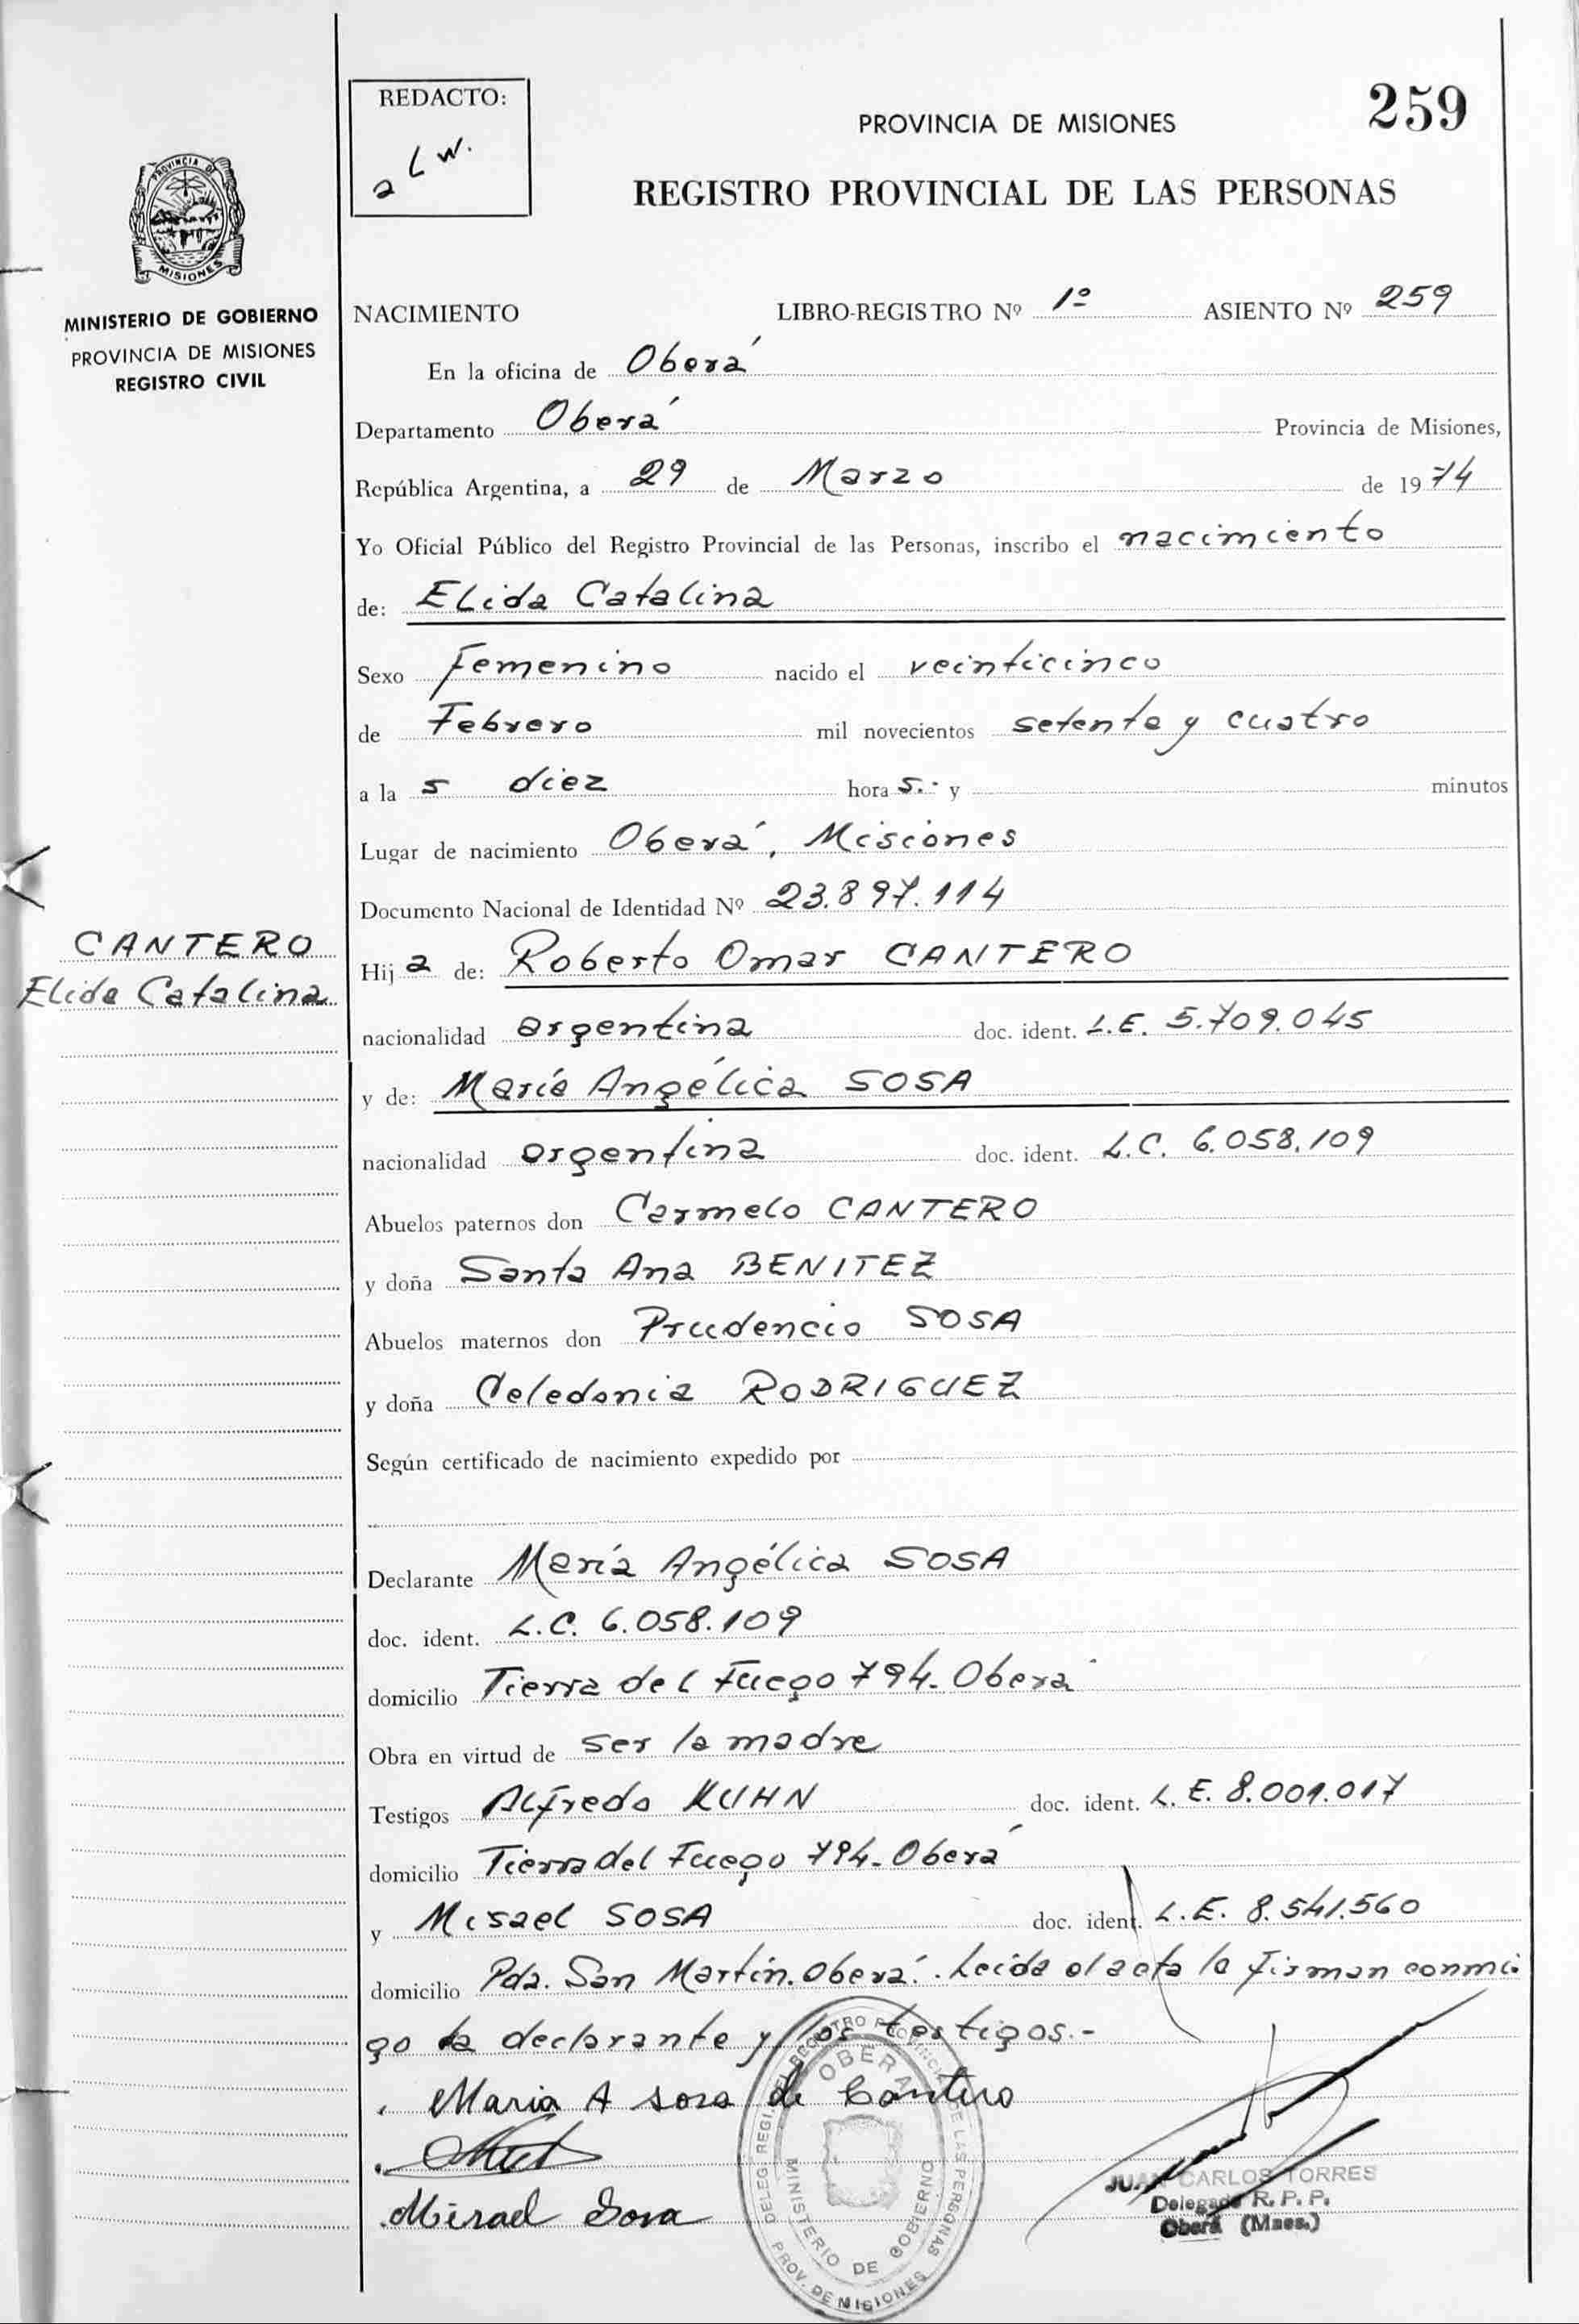 REDACTO:
a L W.
PROVINCIA DE MISIONES
259
REGISTRO PROVINCIAL DE LAS PERSONAS
PROVINCIA DE
MISIONES
MINISTERIO DE GOBIERNO
PROVINCIA DE MISIONES
REGISTRO CIVIL
NACIMIENTO LIBRO-REGISTRO Nº 1º ASIENTO Nº 259
En la oficina de Oberá
Departamento Oberá Provincia de Misiones,
República Argentina, a 29 de Marzo de 1974
Yo Oficial Público del Registro Provincial de las Personas, inscribo el nacimiento
de: Elida Catalina
Sexo Femenino nacido el veinticinco
de Febrero mil novecientos setenta y cuatro
a la s diez hora s.- y minutos
Lugar de nacimiento Oberá, Misiones
Documento Nacional de Identidad Nº 23.897.114
CANTERO
Elida Catalina
Hij a de: Roberto Omar CANTERO
nacionalidad argentina doc. ident. L.E. 5.709.045
y de: María Angélica SOSA
nacionalidad argentina doc. ident. L.C. 6.058.109
Abuelos paternos don Carmelo CANTERO
y doña Santa Ana BENITEZ
Abuelos maternos don Prudencio SOSA
y doña Celedonia RODRIGUEZ
Según certificado de nacimiento expedido por
Declarante María Angélica SOSA
doc. ident. L.C. 6.058.109
domicilio Tierra del Fuego 794-Oberá
Obra en virtud de ser la madre
Testigos Alfredo KUHN doc. ident. L.E. 8.001.017
domicilio Tierra del Fuego 794-Oberá
y Misael SOSA doc. ident. L.E. 8.541.560
domicilio Pda. San Martín. Oberá.. Leída el acta la firman conmi
go la declarante y los testigos.-
Maria A sosa de Cantero
Misael Sosa
DELEG. REGI. DEL REGISTRO PROVINCIAL DE LAS PERSONAS
OBERA
MINISTERIO DE GOBIERNO
PROV. DE MISIONES
JUAN CARLOS TORRES
Delegado R. P. P.
Oberá (Mnes.)